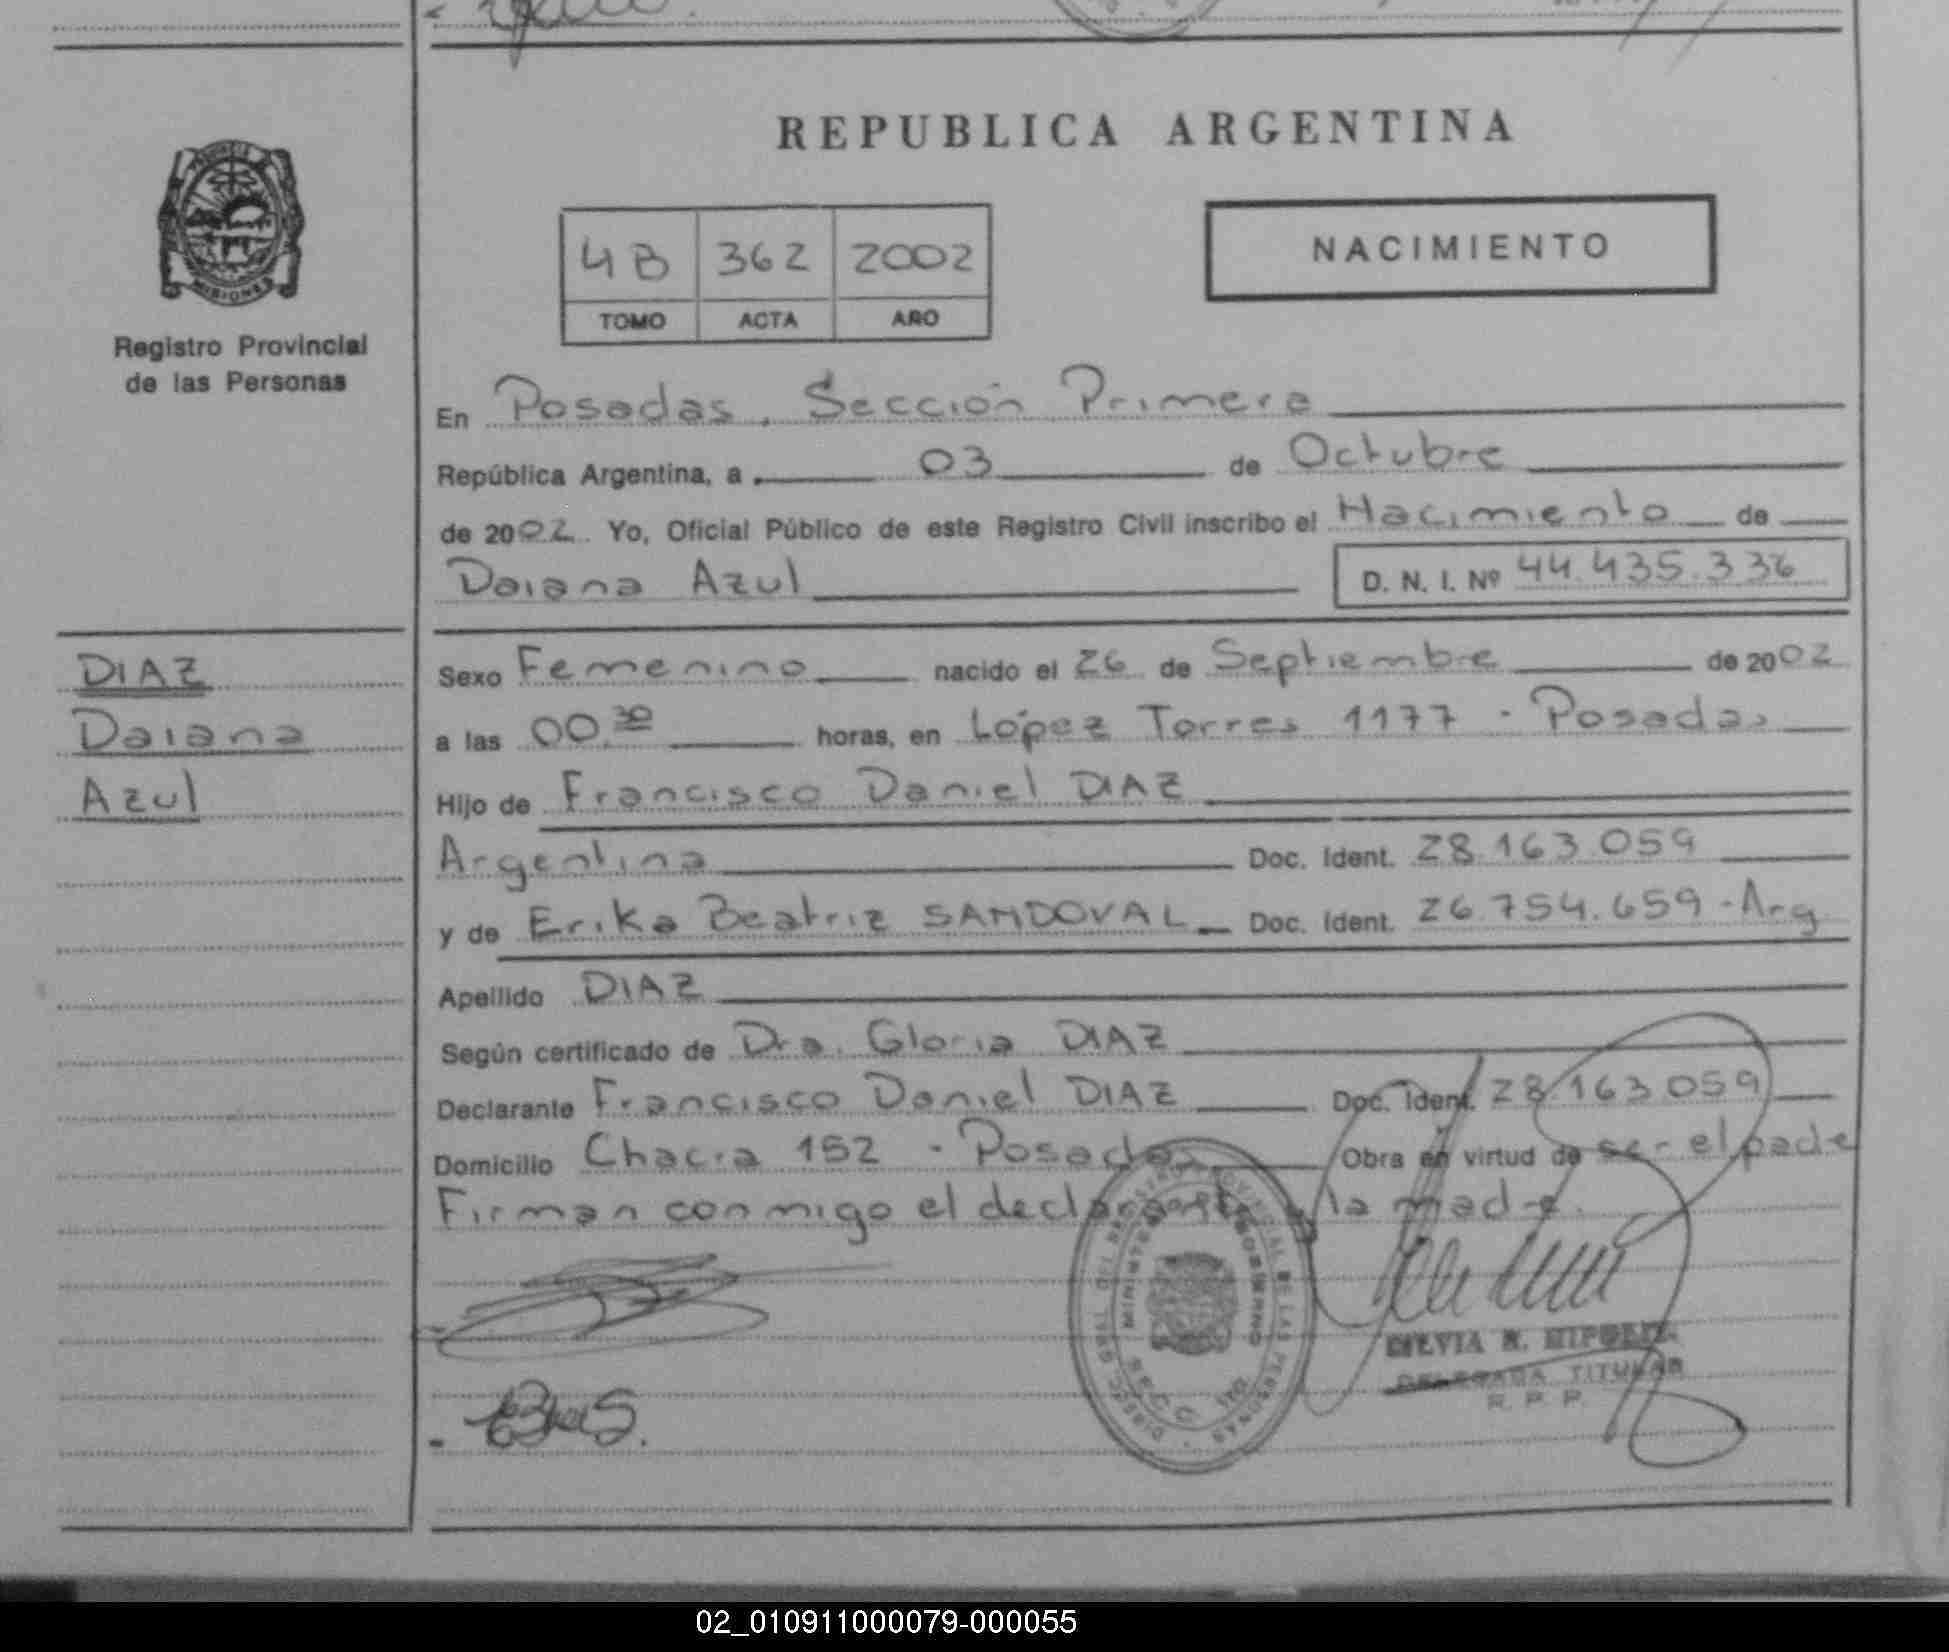 REPUBLICA ARGENTINA
PROVINCIA
MISIONES
Registro Provincial
de las Personas
4B 362 2002
TOMO ACTA AÑO
NACIMIENTO
En Posadas, Sección Primera
República Argentina, a 03 de Octubre
de 2002. Yo, Oficial Público de este Registro Civil inscribo el Nacimiento de
Daiana Azul D. N. I. Nº 44.435.336
DIAZ
Daiana
Azul
Sexo Femenino nacido el 26 de Septiembre de 2002
a las 00.30 horas, en López Torres 1177 - Posadas
Hijo de Francisco Daniel DIAZ
Argentina Doc. Ident. 28.163.059
y de Erika Beatriz SANDOVAL Doc. Ident. 26.754.659 - Arg
Apellido DIAZ
Según certificado de Dra. Gloria DIAZ
Declarante Francisco Daniel DIAZ Doc. Ident. 28.163.059
Domicilio Chacra 152 - Posadas Obra en virtud de ser el padre
Firman conmigo el declarante y la madre.
SILVIA N.
DELEGADA TITULAR
R. P. P.
02_010911000079-000055